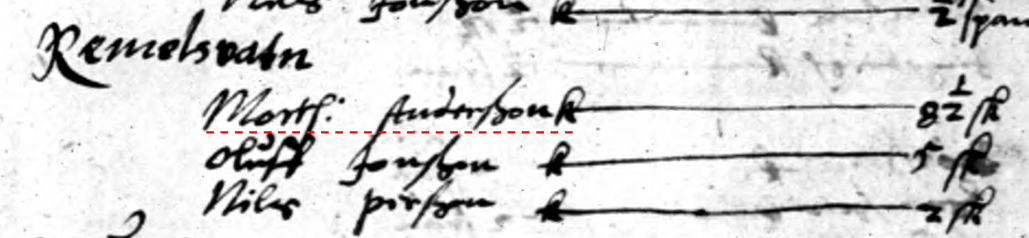 Niels Jonßon k ½ span
Remelsvatn
Morth: Anderßon k 8 ½ sk
Oluff Jonßon k 5 sk
Nils perßon k 2 sk